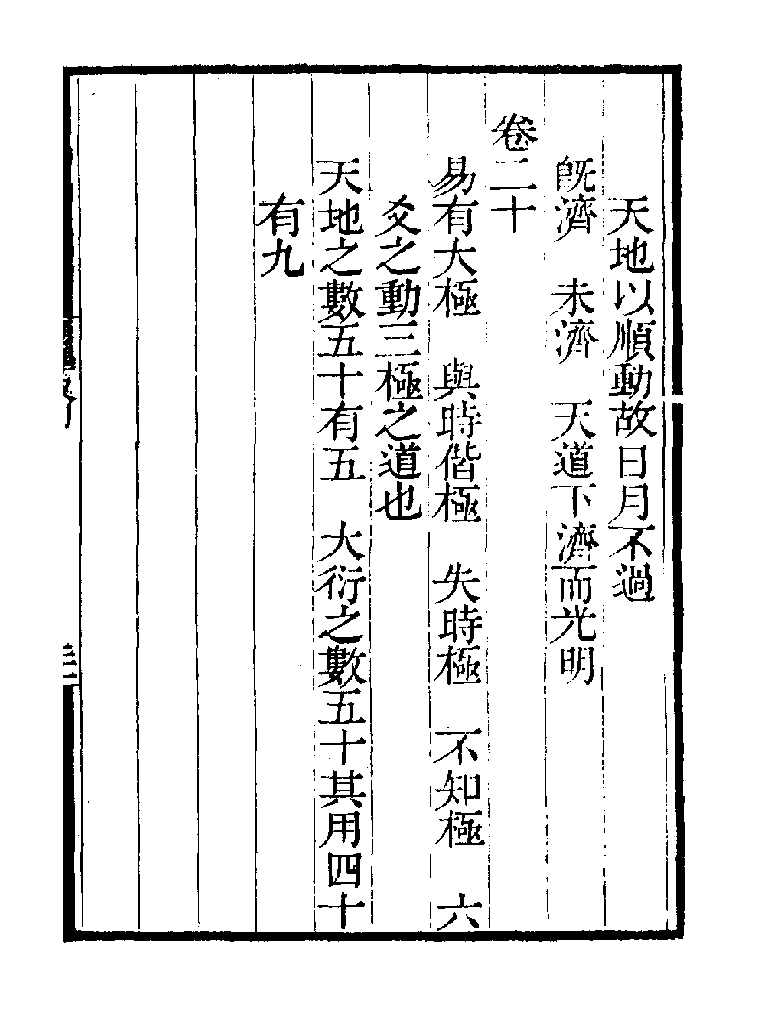 天地以順動故日月不過
旣濟　未濟　天道下濟而光明
卷二十
易有大極　與時偕極　失時極　不知極　六
爻之動三極之道也
天地之數五十有五　大衍之數五十其用四十
有九